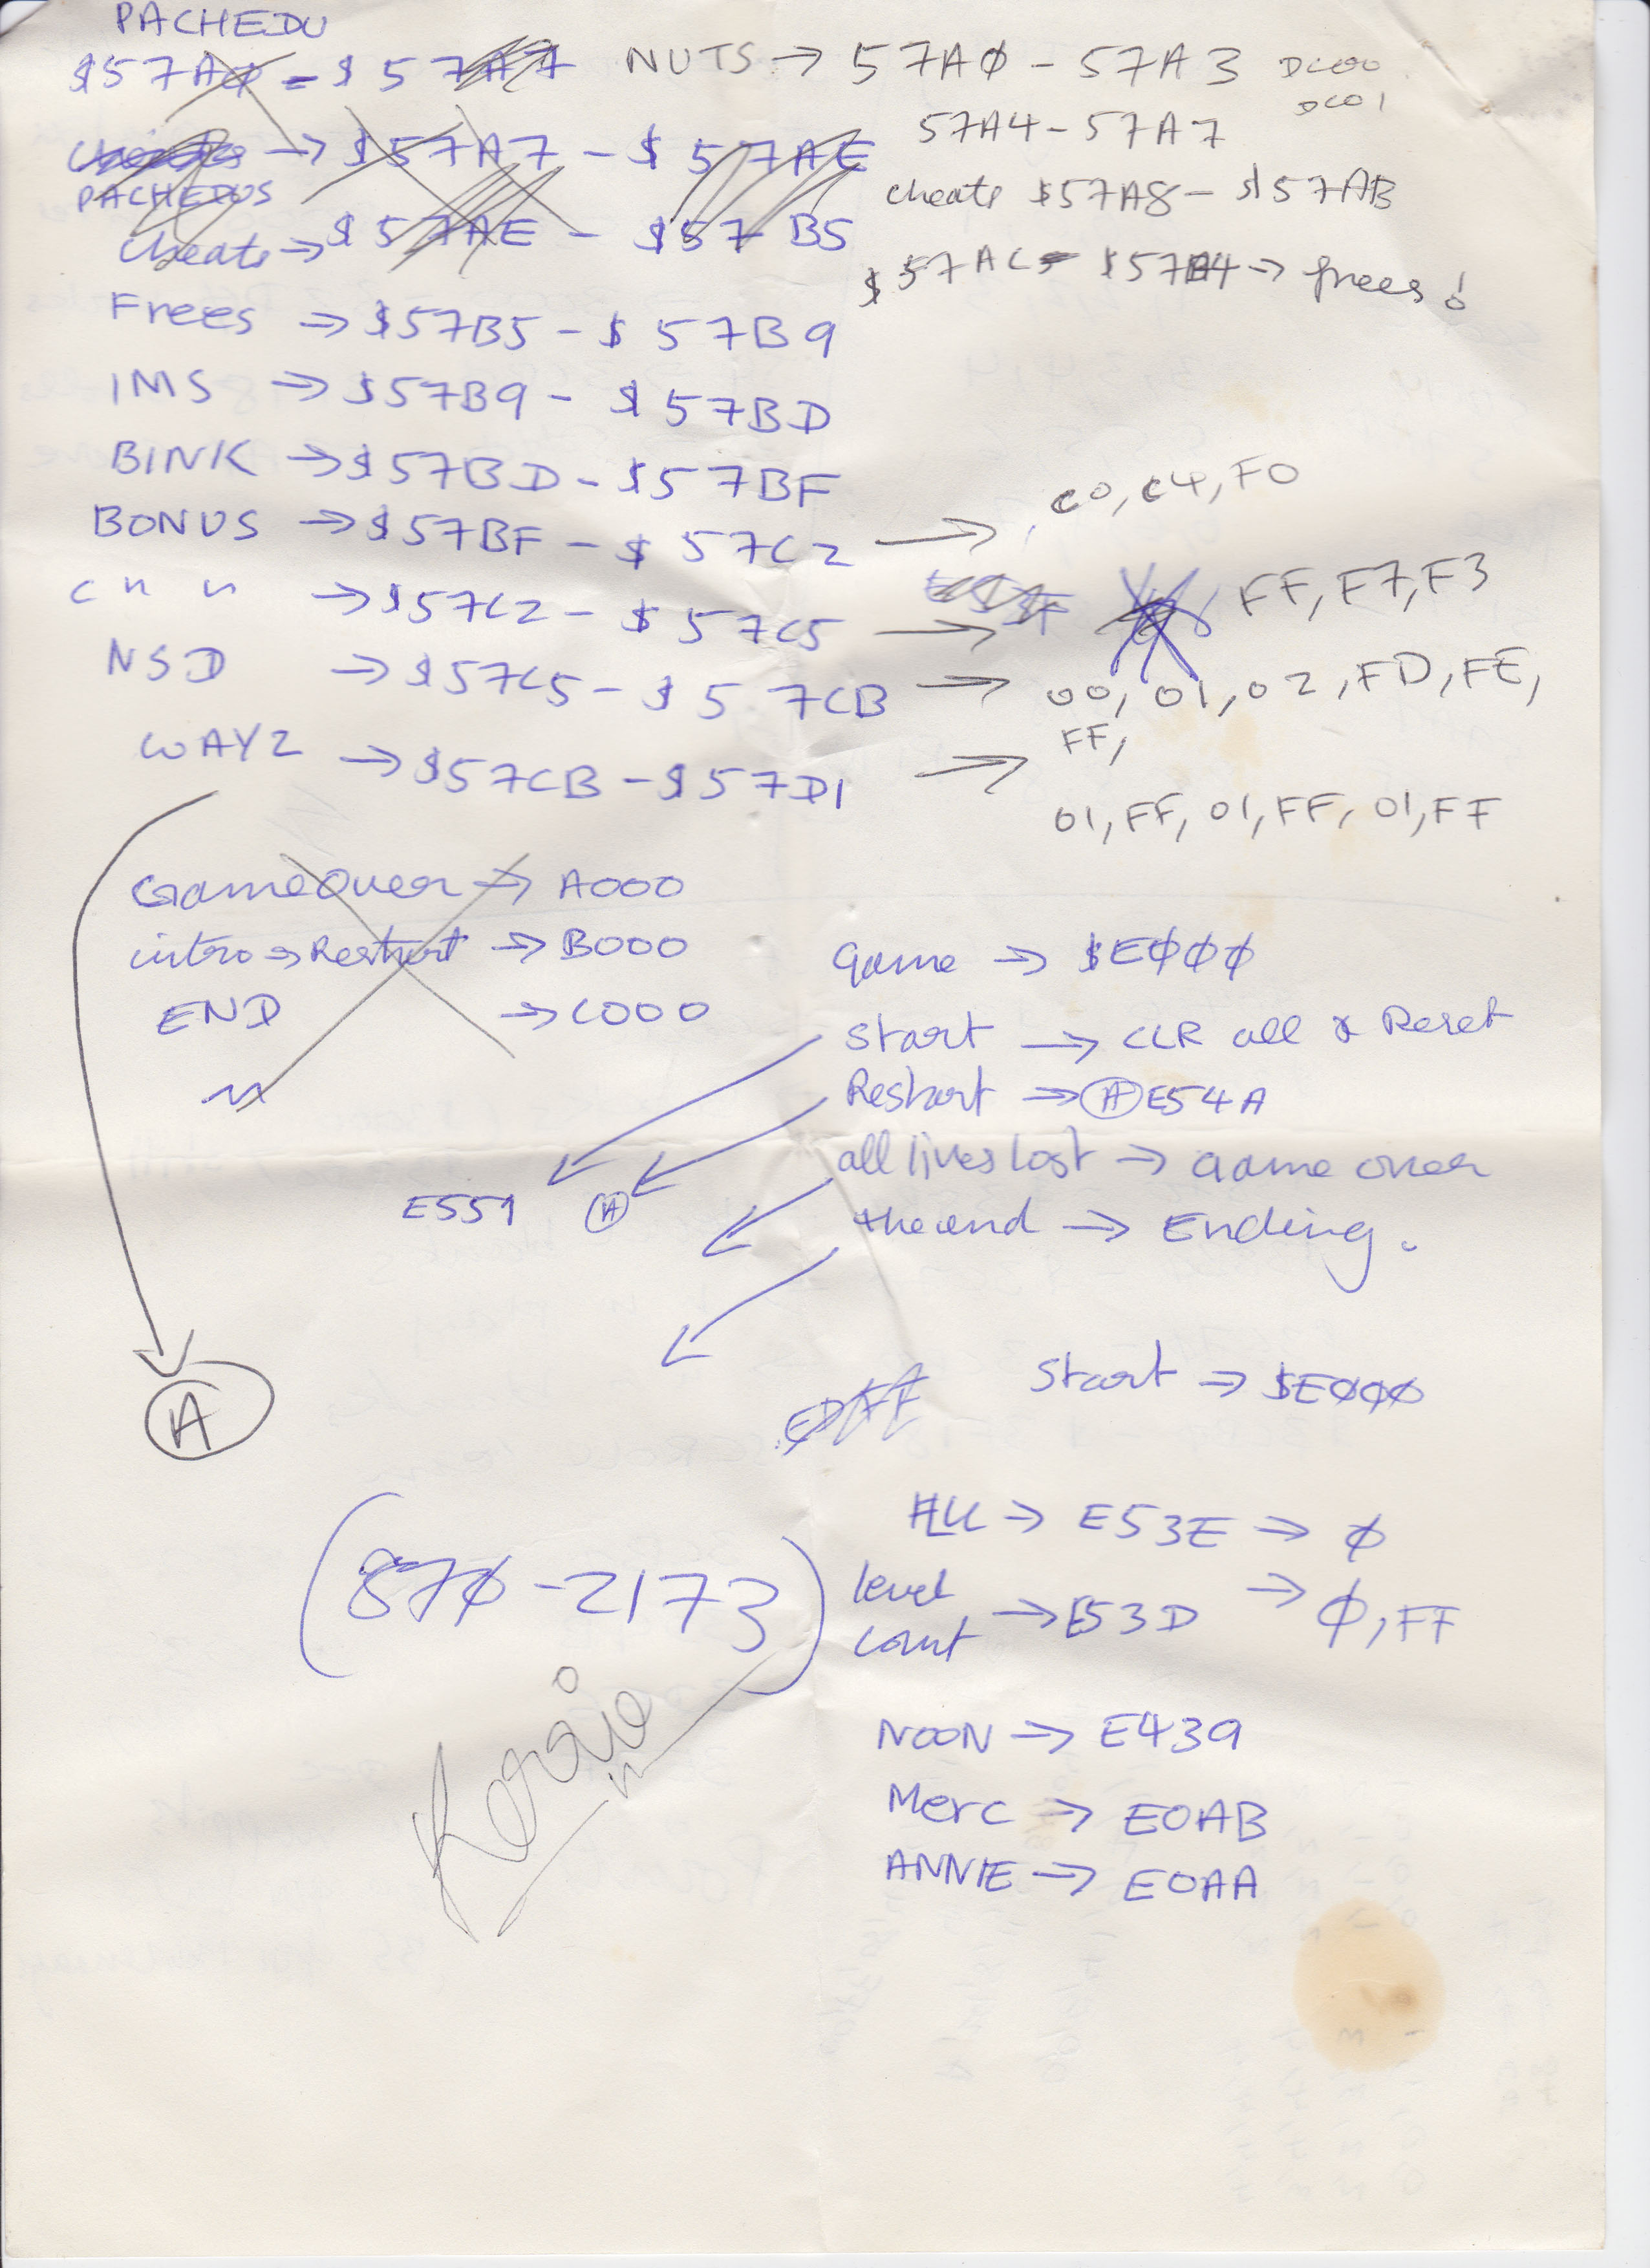 PACHEDU
$57AØ - $57A7 NUTS → 57AØ - 57A3 DC00
DC01
57A4 - 57A7
→ $57A7 - $57AE
cheats $57A8 - $57AB
PACHEDUS
cheats → $57AE - $57B5
$57AC - $57B4 → frees
Frees → $57B5 - $57B9
IMS → $57B9 - $57BD
BINK → $57BD - $57BF
C0, C4, F0
BONUS → $57BF - $57C2 →
C " " → $57C2 - $57C5 → FF, F7, F3
NSD → $57C5 - $57CB → 00, 01, 02, FD, FE,
FF,
WAY2 → $57CB - $57D1 →
01, FF, 01, FF, 01, FF
Gameover → A000
intro → Restart → B000
END → C000
game → $EØØØ
start → CLR all & Reset
Restart → A E54A
all lives lost → Game over
E551 A
the end → Ending.
start → $EØØØ
A
→ E53E → Ø
(87Ø-2173)
level
count → E53D → Ø, FF
NOON → E439
Merc → E0AB
ANNIE → E0AA